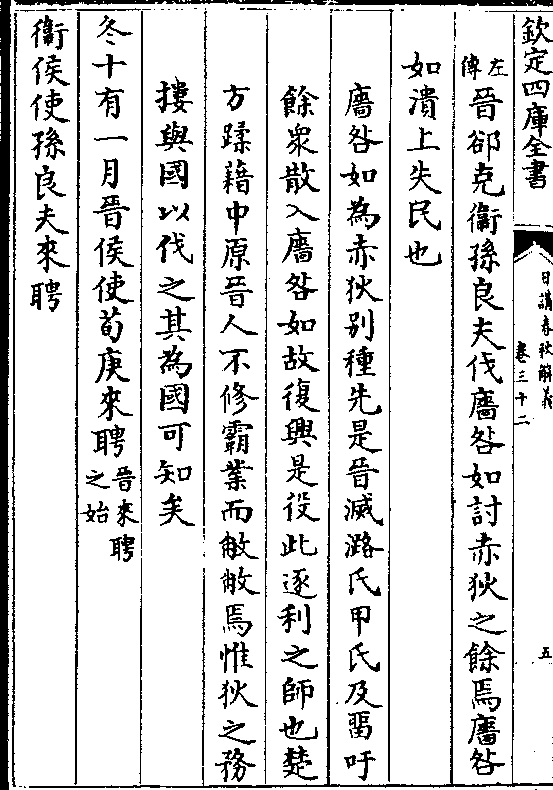 欽定四庫全書
日講春秋解義
卷三十二
五
左傳晉郤克衞孫良夫伐廧咎如討赤狄之餘焉廧咎
如潰上失民也
廧咎如為赤狄别種先是晉滅潞氏甲氏及畱吁
餘衆散入廧咎如故復興是役此逐利之師也楚
方蹂藉中原晉人不修霸業而敝敝焉惟狄之務
摟與國以伐之其為國可知矣
冬十有一月晉侯使荀庚來聘晉來聘之始
衞侯使孫良夫來聘